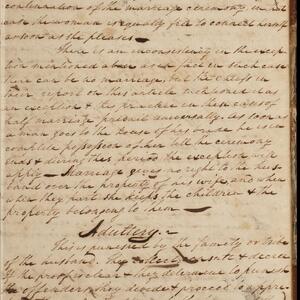 continuation of the marriage ceremony, in that
case the woman is equally free to connect herself
as soon as she pleases —
There is an inconsistency in the excep
tion mentioned above as in fact in such case
there can be no marriage, but the Chiefs in
their report on this article mentioned it as
an exception & the practice in these cases of
half marriage prevails universally. As soon as
a man goes to the House of his bride he is in
complete possession of her till the ceremony
ends & during this period the exception will
apply — Marriage gives no right to the hus
band over the property of his wife, and when
when they part she keeps the children & the
property belonging to them —
Adultery. —
This is punished by the family or tribe
of the husband. They collect & decree
if the proof is clear & they determine to punish
the offenders, they divide & proceed to appre